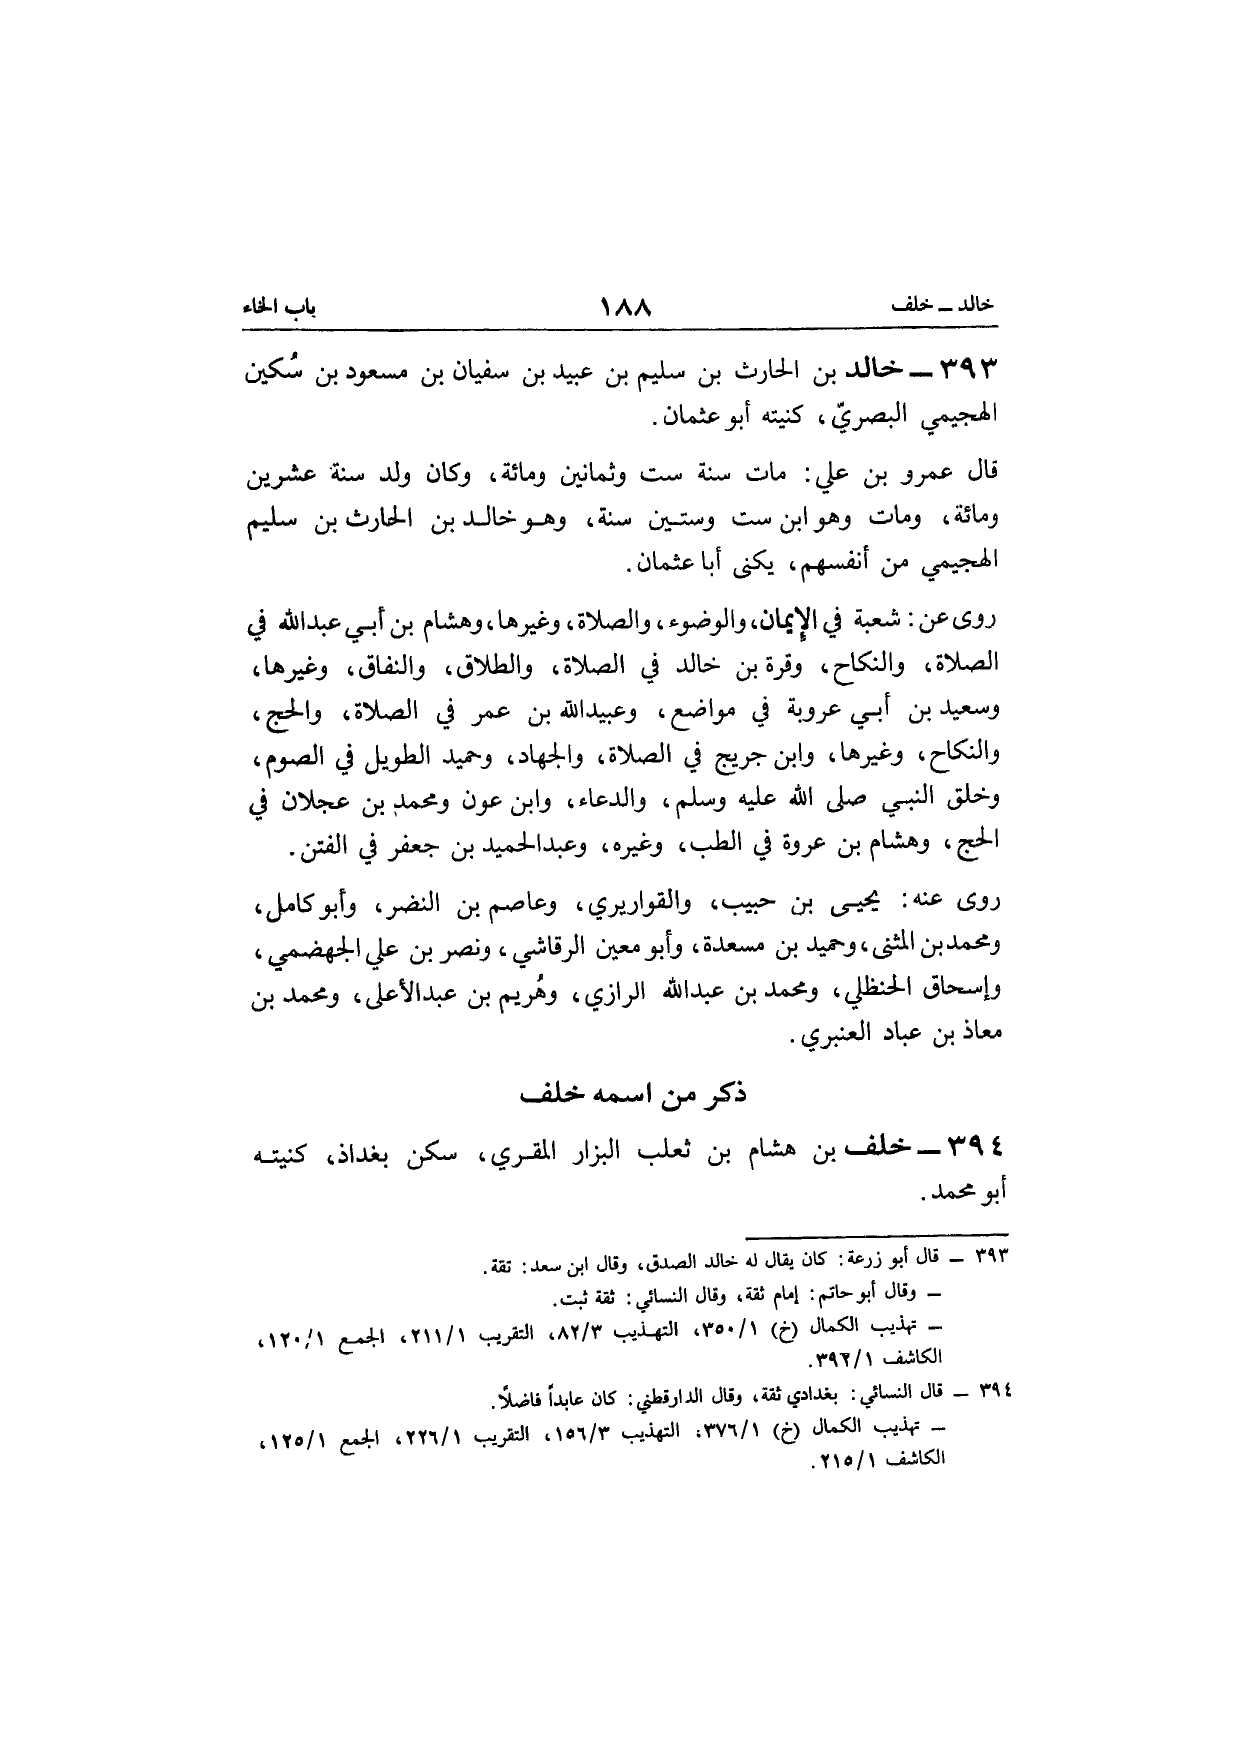 خالد ــ خلف ١٨٨ باب الخاء
٣٩٣ ــ خالد بن الحارث بن سليم بن عبيد بن سفيان بن مسعود بن سُكين
الهجيمي البصريّ، كنيته أبو عثمان.
قال عمرو بن علي: مات سنة ست وثمانين ومائة، وكان ولد سنة عشرين
ومائة، ومات وهو ابن ست وستين سنة، وهو خالد بن الحارث بن سليم
الهجيمي من أنفسهم، يكنى أبا عثمان.
روى عن: شعبة في الإيمان، والوضوء، والصلاة، وغيرها، وهشام بن أبي عبدالله في
الصلاة، والنكاح، وقرة بن خالد في الصلاة، والطلاق، والنفاق، وغيرها،
وسعيد بن أبي عروبة في مواضع، وعبيدالله بن عمر في الصلاة، والحج،
والنكاح، وغيرها، وابن جريج في الصلاة، والجهاد، وحميد الطويل في الصوم،
وخلق النبي صلى الله عليه وسلم، والدعاء، وابن عون ومحمد بن عجلان في
الحج، وهشام بن عروة في الطب، وغيره، وعبدالحميد بن جعفر في الفتن.
روى عنه: يحيى بن حبيب، والقواريري، وعاصم بن النضر، وأبو كامل،
ومحمد بن المثنى، وحميد بن مسعدة، وأبو معين الرقاشي، ونصر بن علي الجهضمي،
وإسحاق الحنظلي، ومحمد بن عبدالله الرازي، وهُريم بن عبدالأعلى، ومحمد بن
معاذ بن عباد العنبري.
ذكر من اسمه خلف
٣٩٤ ــ خلف بن هشام بن ثعلب البزار المقري، سكن بغداذ، كنيته
أبو محمد.
٣٩٣ ــ قال أبو زرعة: كان يقال له خالد الصدق، وقال ابن سعد: ثقة.
ــ وقال أبو حاتم: إمام ثقة، وقال النسائي: ثقة ثبت.
ــ تهذيب الكمال (خ) ٣٥٠/١، التهذيب ٨٢/٣، التقريب ٢١١/١، الجمع ١٢٠/١،
الكاشف ٣٩٢/١.
٣٩٤ ــ قال النسائي: بغدادي ثقة، وقال الدارقطني: كان عابداً فاضلًا.
ــ تهذيب الكمال (خ) ٣٧٦/١، التهذيب ١٥٦/٣، التقريب ٢٢٦/١، الجمع ١٢٥/١،
الكاشف ٢١٥/١.